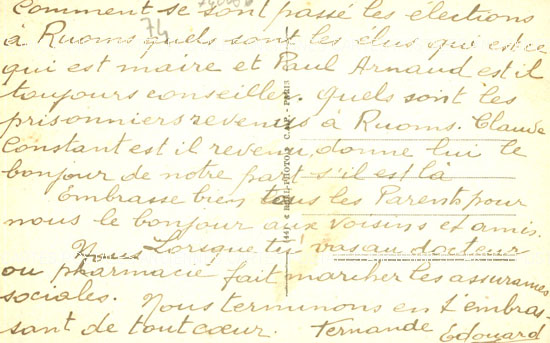 Comment se sont passé les élections
à Ruoms quels sont les élus qui est ce
qui est maire et Paul Arnaud est il
toujours conseiller. quels sont les
prisonniers revenus à Ruoms. Claude
Constant est il revenu, donne lui le
bonjour de notre part s'il est la
Embrasse bien tous les Parents pour
nous le bonjour aux voisins et amis.
Lorsque tu vas au docteur
ou pharmacie fait marcher les assurances
sociales. Nous terminons en t'embras-
sant de tout cœur. Fernande Edouard
74
PHOTO C.A.P. - PARIS